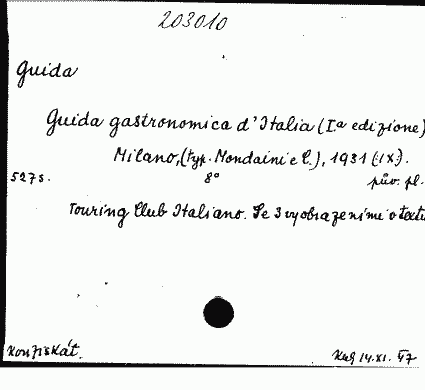 203010
Guida
Guida gastronomica d'Italia (I.a edizione)
Milano, (typ. Mondaini e C.), 1931 (IX).
527 s. 8° pův. pl.
Touring Club Italiano. Se 3 vyobrazeními v textu
Konfiskát. 14.XI.47